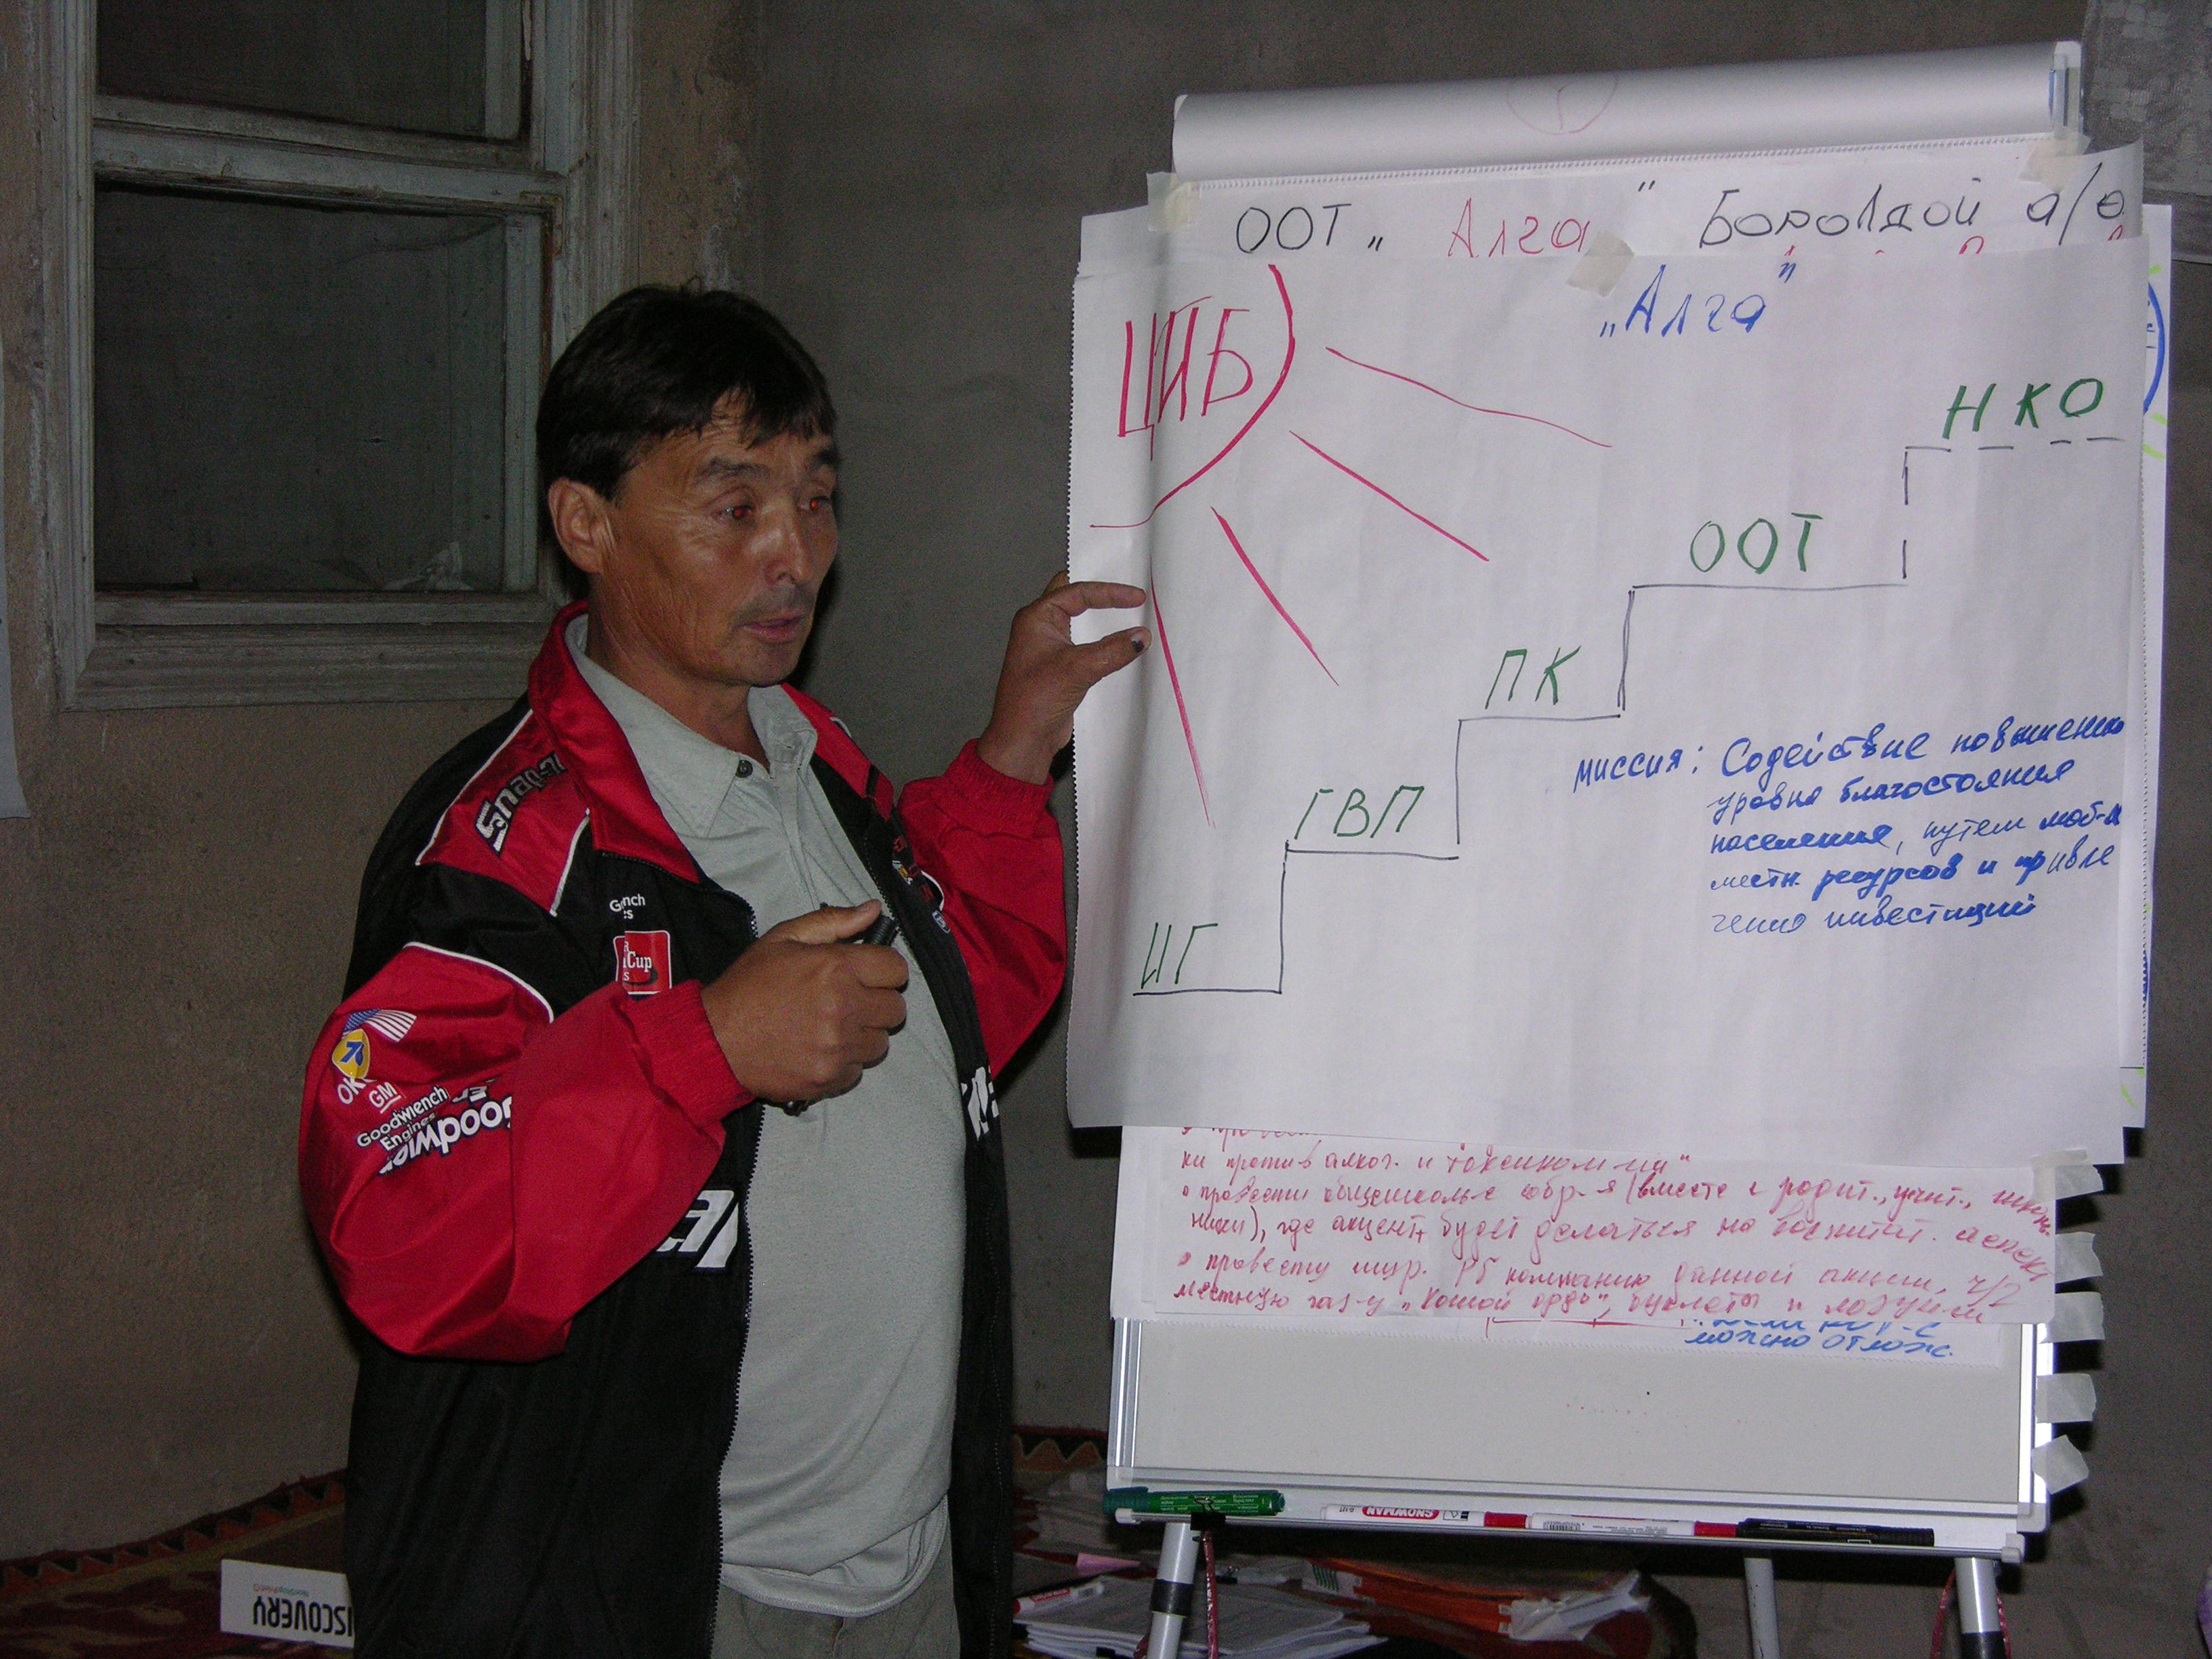 ООТ „Алга" Боролдой а/ө
„Алга"
ЦПБ
НКО
ООТ
ПК
ГВП
ИГ
миссия: Содействие повышению
уровня благостояния
населения, путем моб-и
местн. ресурсов и привле
чению инвестиций
ки против алког. и токсиком-ии"
провести общешкольн-е собр-я (вместе с родит., учит., школь
ники), где акцент будет делаться на воспитат. аспект
провести шир. PR компанию данной акции, ч/з
местную газ-у „ ", буклеты и лозунги
можно отлож.
Snap-
Cup
76
GM
Goodwrench
Engines
SNOWMAN
ISCOVERY